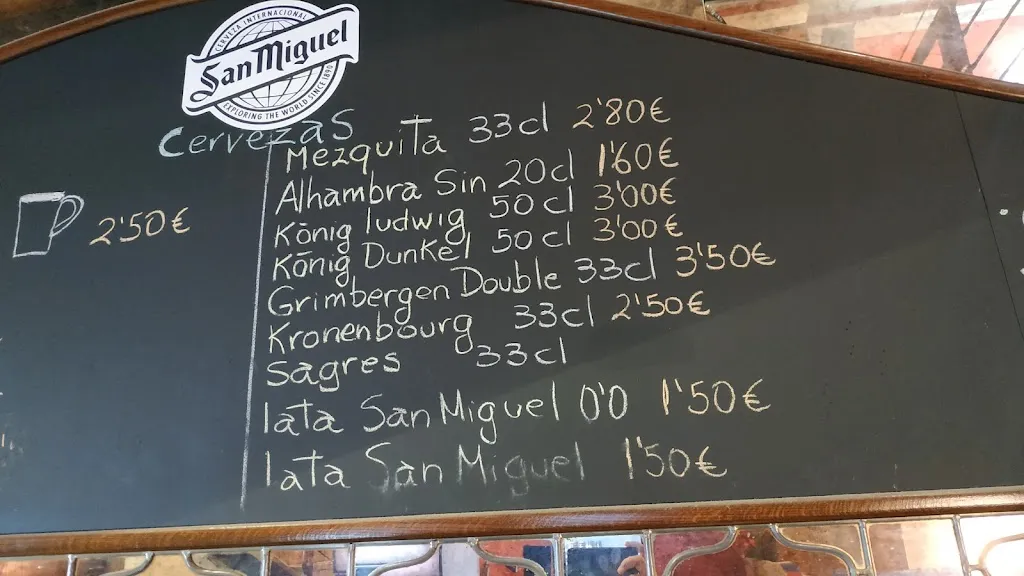 CERVEZA INTERNACIONAL
San Miguel
EXPLORING THE WORLD SINCE 1890
Cervezas
Mezquita 33cl 2'80€
Alhambra Sin 20cl 1'60€
König ludwig 50cl 3'00€
König Dunkel 50cl 3'00€
Grimbergen Double 33cl 3'50€
Kronenbourg 33cl 2'50€
sagres 33cl
lata San Miguel 0'0 1'50€
lata San Miguel 1'50€
2'50€